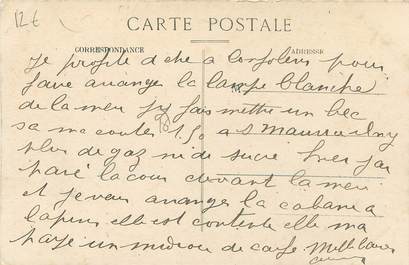 12 €
CARTE POSTALE
CORRESPONDANCE
ADRESSE
Je profite d être a pour
faire arranger la lampe blanche
de la meu j y fais mettre un bec
sa me coute 1.50 a St Maurice
plus de gaz ni de sucre hier jai
paré la cour devant la meu
et je veux arranger la cabane a
lapins elle est contente elle ma
payé un de café Mille